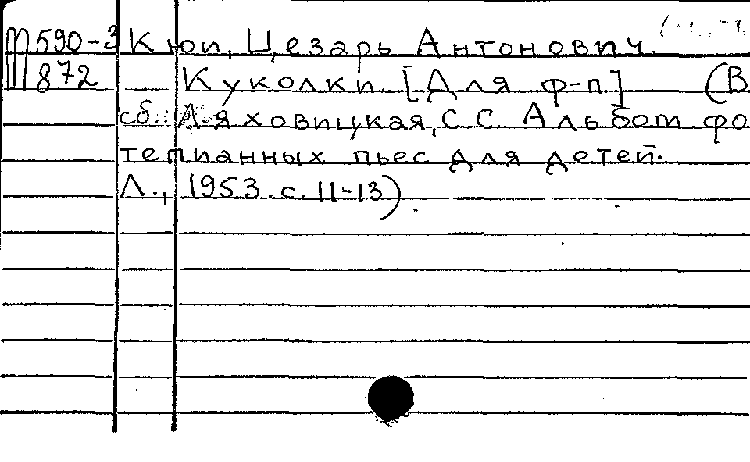 М590-3 Кюи, Цезарь Антонович.
872 Куколки [Для ф-п] (В
сб.: Ляховицкая, С.С. Альбом фо
тепианных пьес для детей.
Л., 1953. с. 11-13).